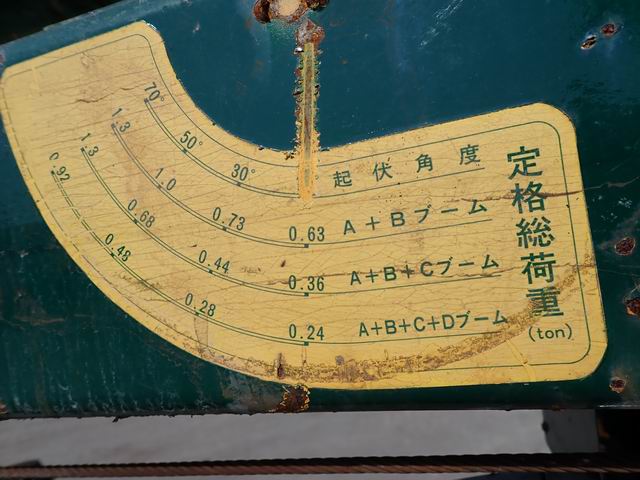 定格総荷重
(ton)
70° 50° 30° 起伏角度
1.3 1.0 0.73 0.63 A+Bブーム
1.3 0.68 0.44 0.36 A+B+Cブーム
0.92 0.48 0.28 0.24 A+B+C+Dブーム